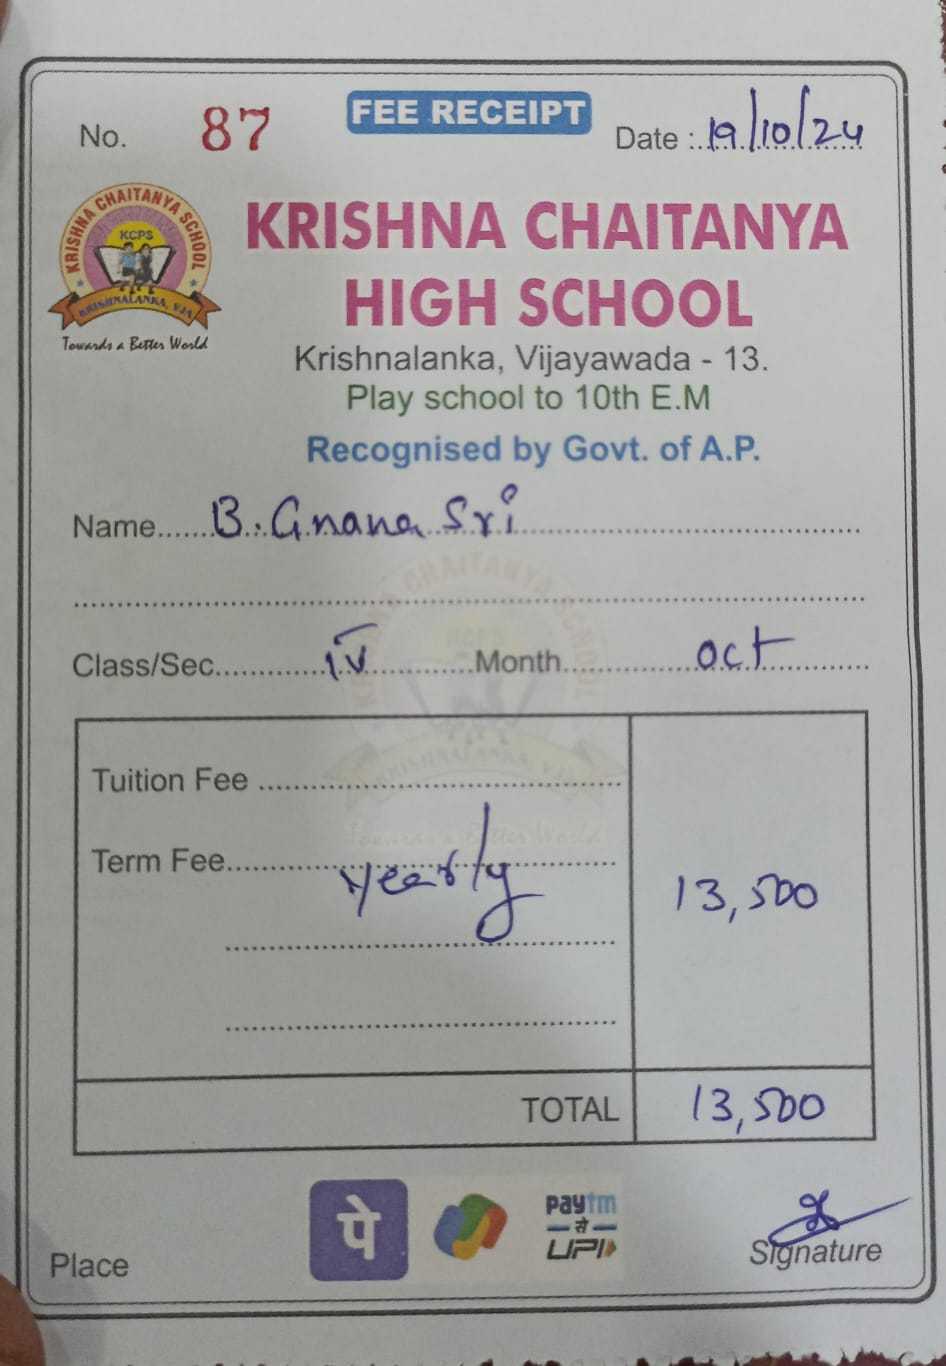 FEE RECEIPT
No. 87 Date : 19/10/24
KRISHNA CHAITANYA SCHOOL
KCPS
KRISHNALANKA, VJA
Towards a Better World
KRISHNA CHAITANYA
HIGH SCHOOL
Krishnalanka, Vijayawada - 13.
Play school to 10th E.M
Recognised by Govt. of A.P.
Name B. Gnana Sri
Class/Sec. IV Month oct
Tuition Fee
Term Fee
yearly 13,500
TOTAL 13,500
पे
paytm
से
UPI
Place Signature